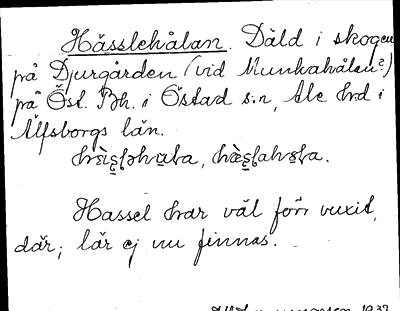 Hässlehålan. Däld i skogen
på Djurgården (vid Munkahålan?)
på Öst. Bh. i Östad s:n, Ale hrd i
Älfsborgs län.
Hassel har väl förr vuxit
där; lär ej nu finnas.
1932